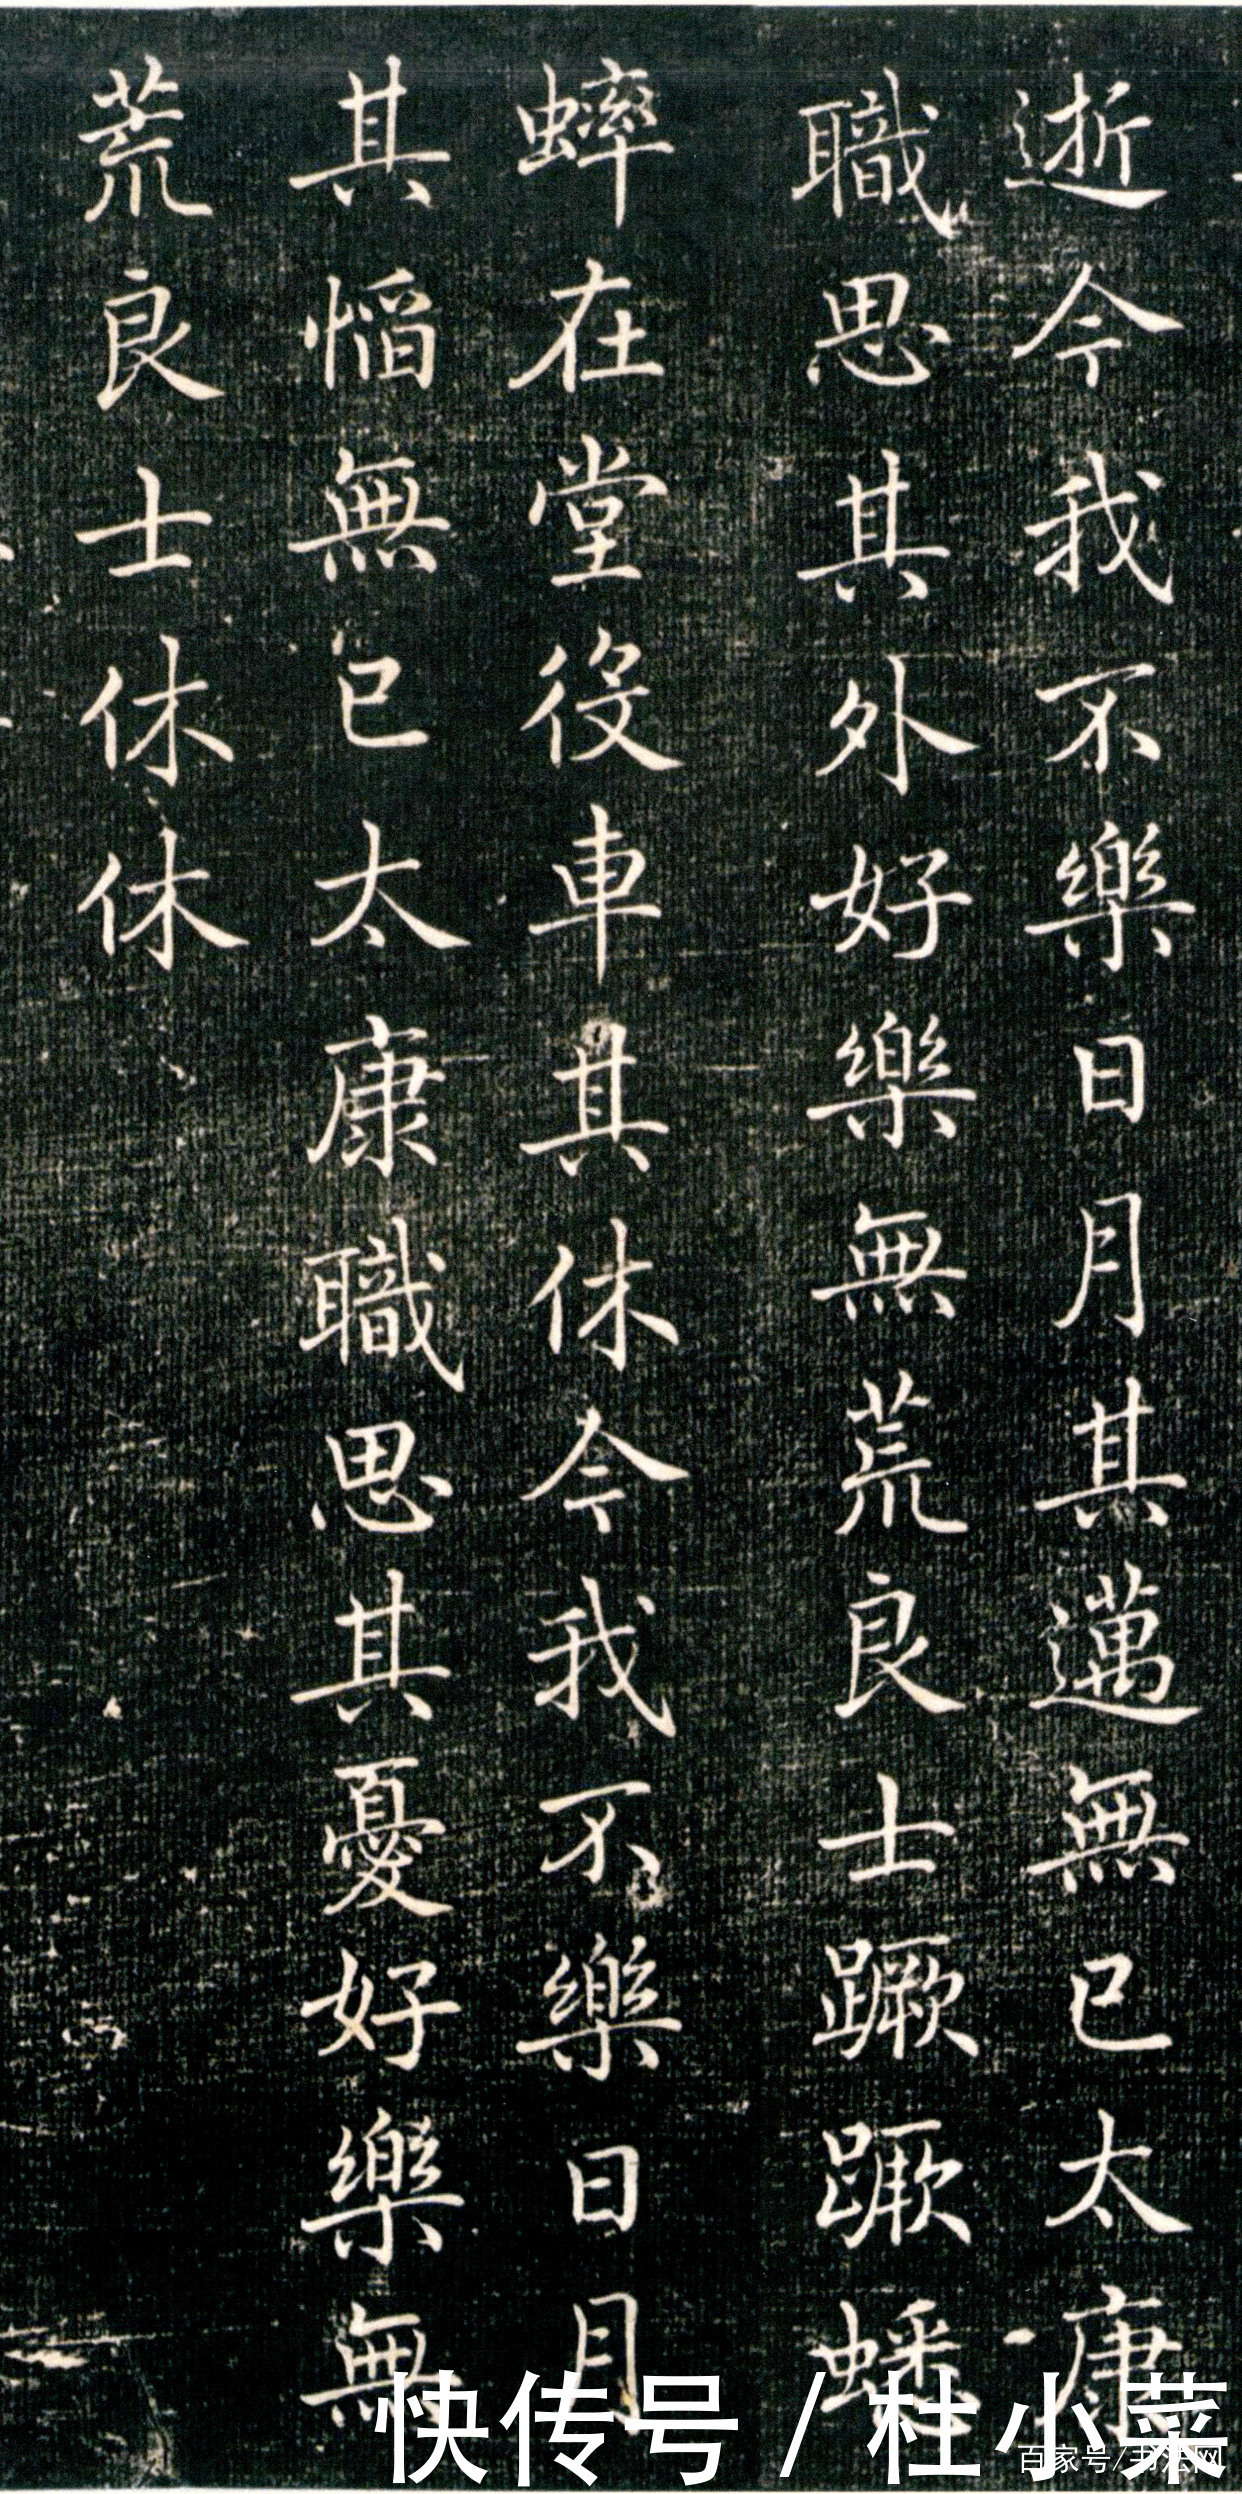 逝今我不樂日月其邁無已太康
職思其外好樂無荒良士蹶蹶蟋
蟀在堂役車其休今我不樂日月
其慆無已太康職思其憂好樂無
荒良士休休
快传号 / 杜小菜
百家号/书法网